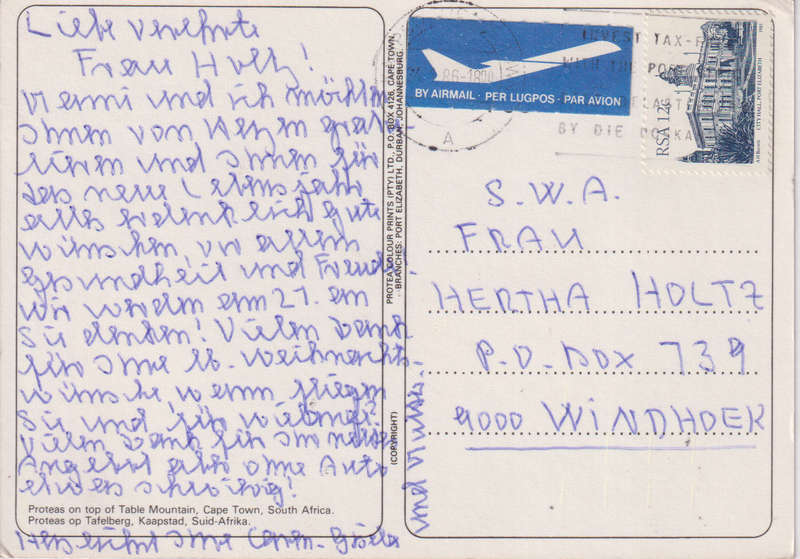 Liebe verehrte
Frau Holtz!
und ich möchten
Ihnen von Herzen gratu-
lieren und Ihnen für
das neue Lebensjahr
alles erdenklich gute
wünschen, vor allem
Gesundheit und Freude!
Wir werden am 21. an
Sie denken! Vielen Dank
für Ihre lb. Weihnachts-
wünsche, wann fliegen
Sie und für wie lange?
Vielen Dank für Ihr
Angebot ohne Auto
etwas schwierig!
Ihre
Proteas on top of Table Mountain, Cape Town, South Africa.
Proteas op Tafelberg, Kaapstad, Suid-Afrika.
PROTEA COLOUR PRINTS (PTY) LTD., P.O. BOX 4126, CAPE TOWN.
BRANCHES: PORT ELIZABETH, DURBAN, JOHANNESBURG.
(COPYRIGHT)
BY AIRMAIL · PER LUGPOS · PAR AVION
86-1800
A
INVEST TAX-F
WITH THE POS
BY DIE PO
RSA 12c
CITY HALL, PORT ELIZABETH
S.W.A.
FRAU
HERTHA HOLTZ
P.O. BOX 739
9000 WINDHOEK